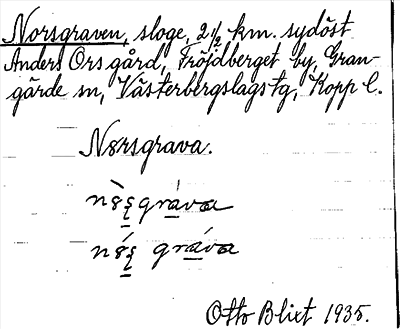 Norsgraven, sloge, 2 1/2 km. sydöst
Anders Ors gård, Fröjdberget by, Gran-
gärde sn, Västerbergslags tg, Kopp l.
Norsgrava.
Otto Blixt 1935.